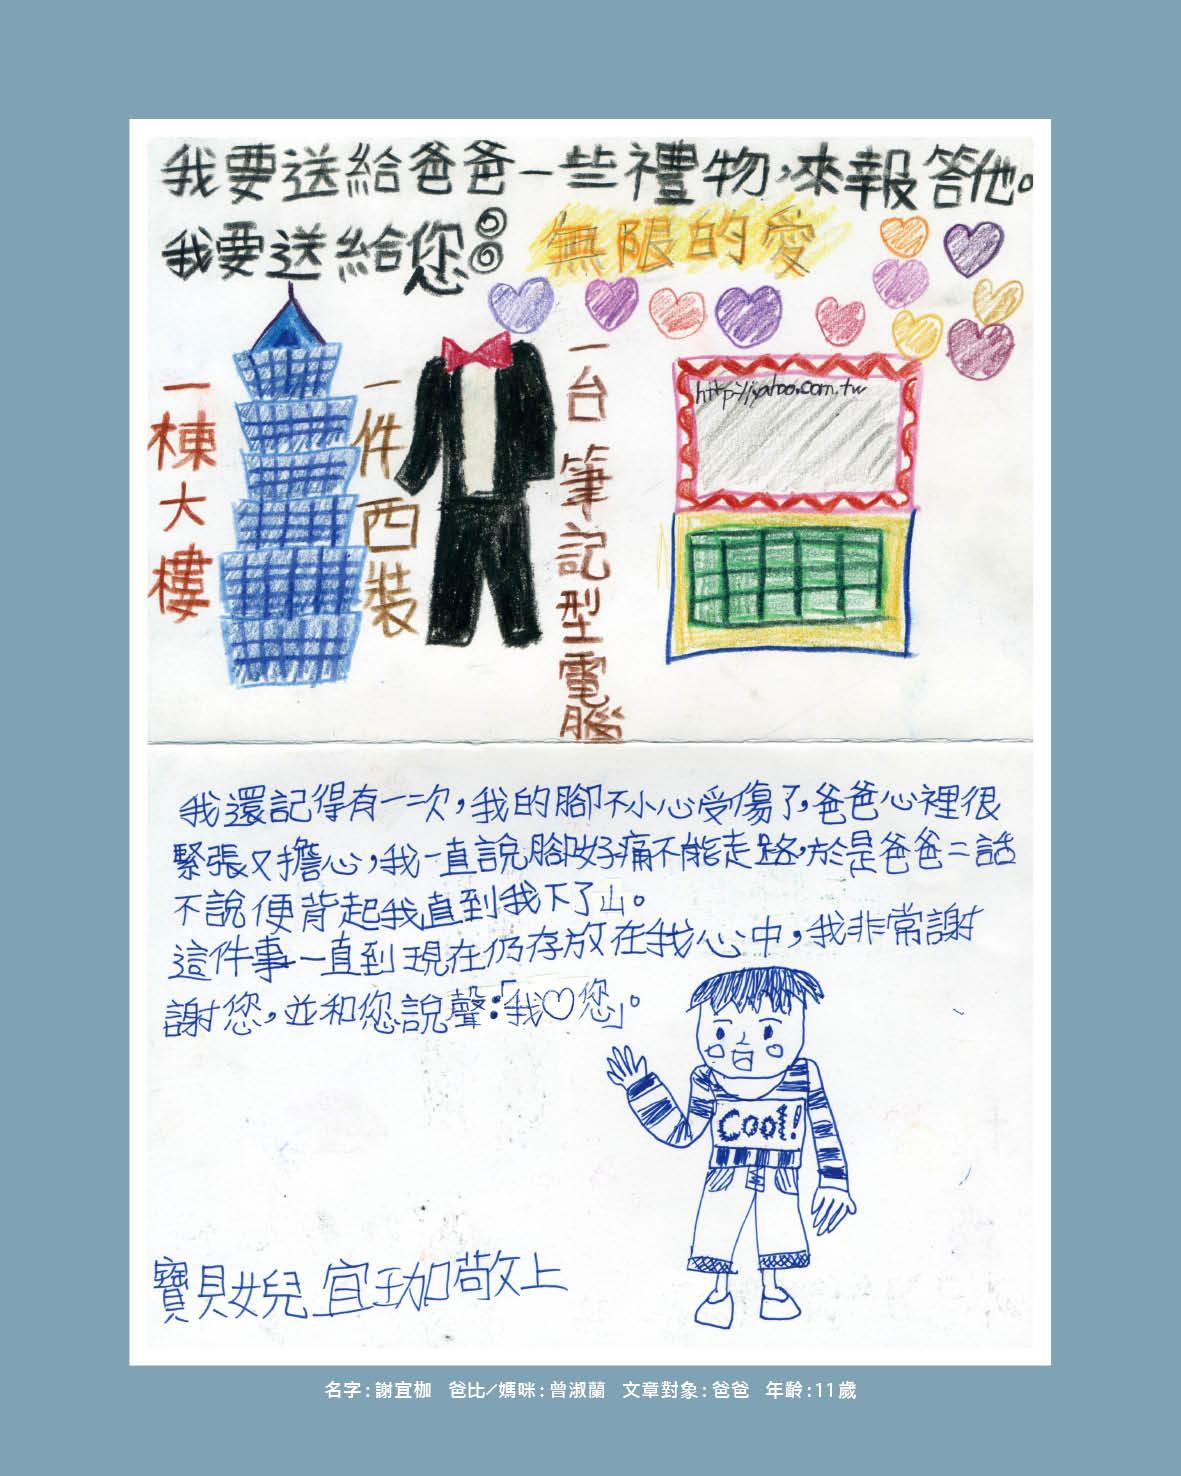 我要送給爸爸一些禮物,來報答他。
我要送給您:無限的愛
一棟大樓
一件西裝
一台筆記型電腦
http://yahoo.com.tw
我還記得有一次,我的腳不小心受傷了,爸爸心裡很
緊張又擔心,我一直說腳好痛不能走路,於是爸爸二話
不說便背起我直到我下了山。
這件事一直到現在仍存放在我心中,我非常謝
謝您,並和您說聲:「我♡您」。
Cool!
寶貝女兒 宜珈敬上
名字:謝宜枷 爸比/媽咪:曾淑蘭 文章對象:爸爸 年齡:11歲